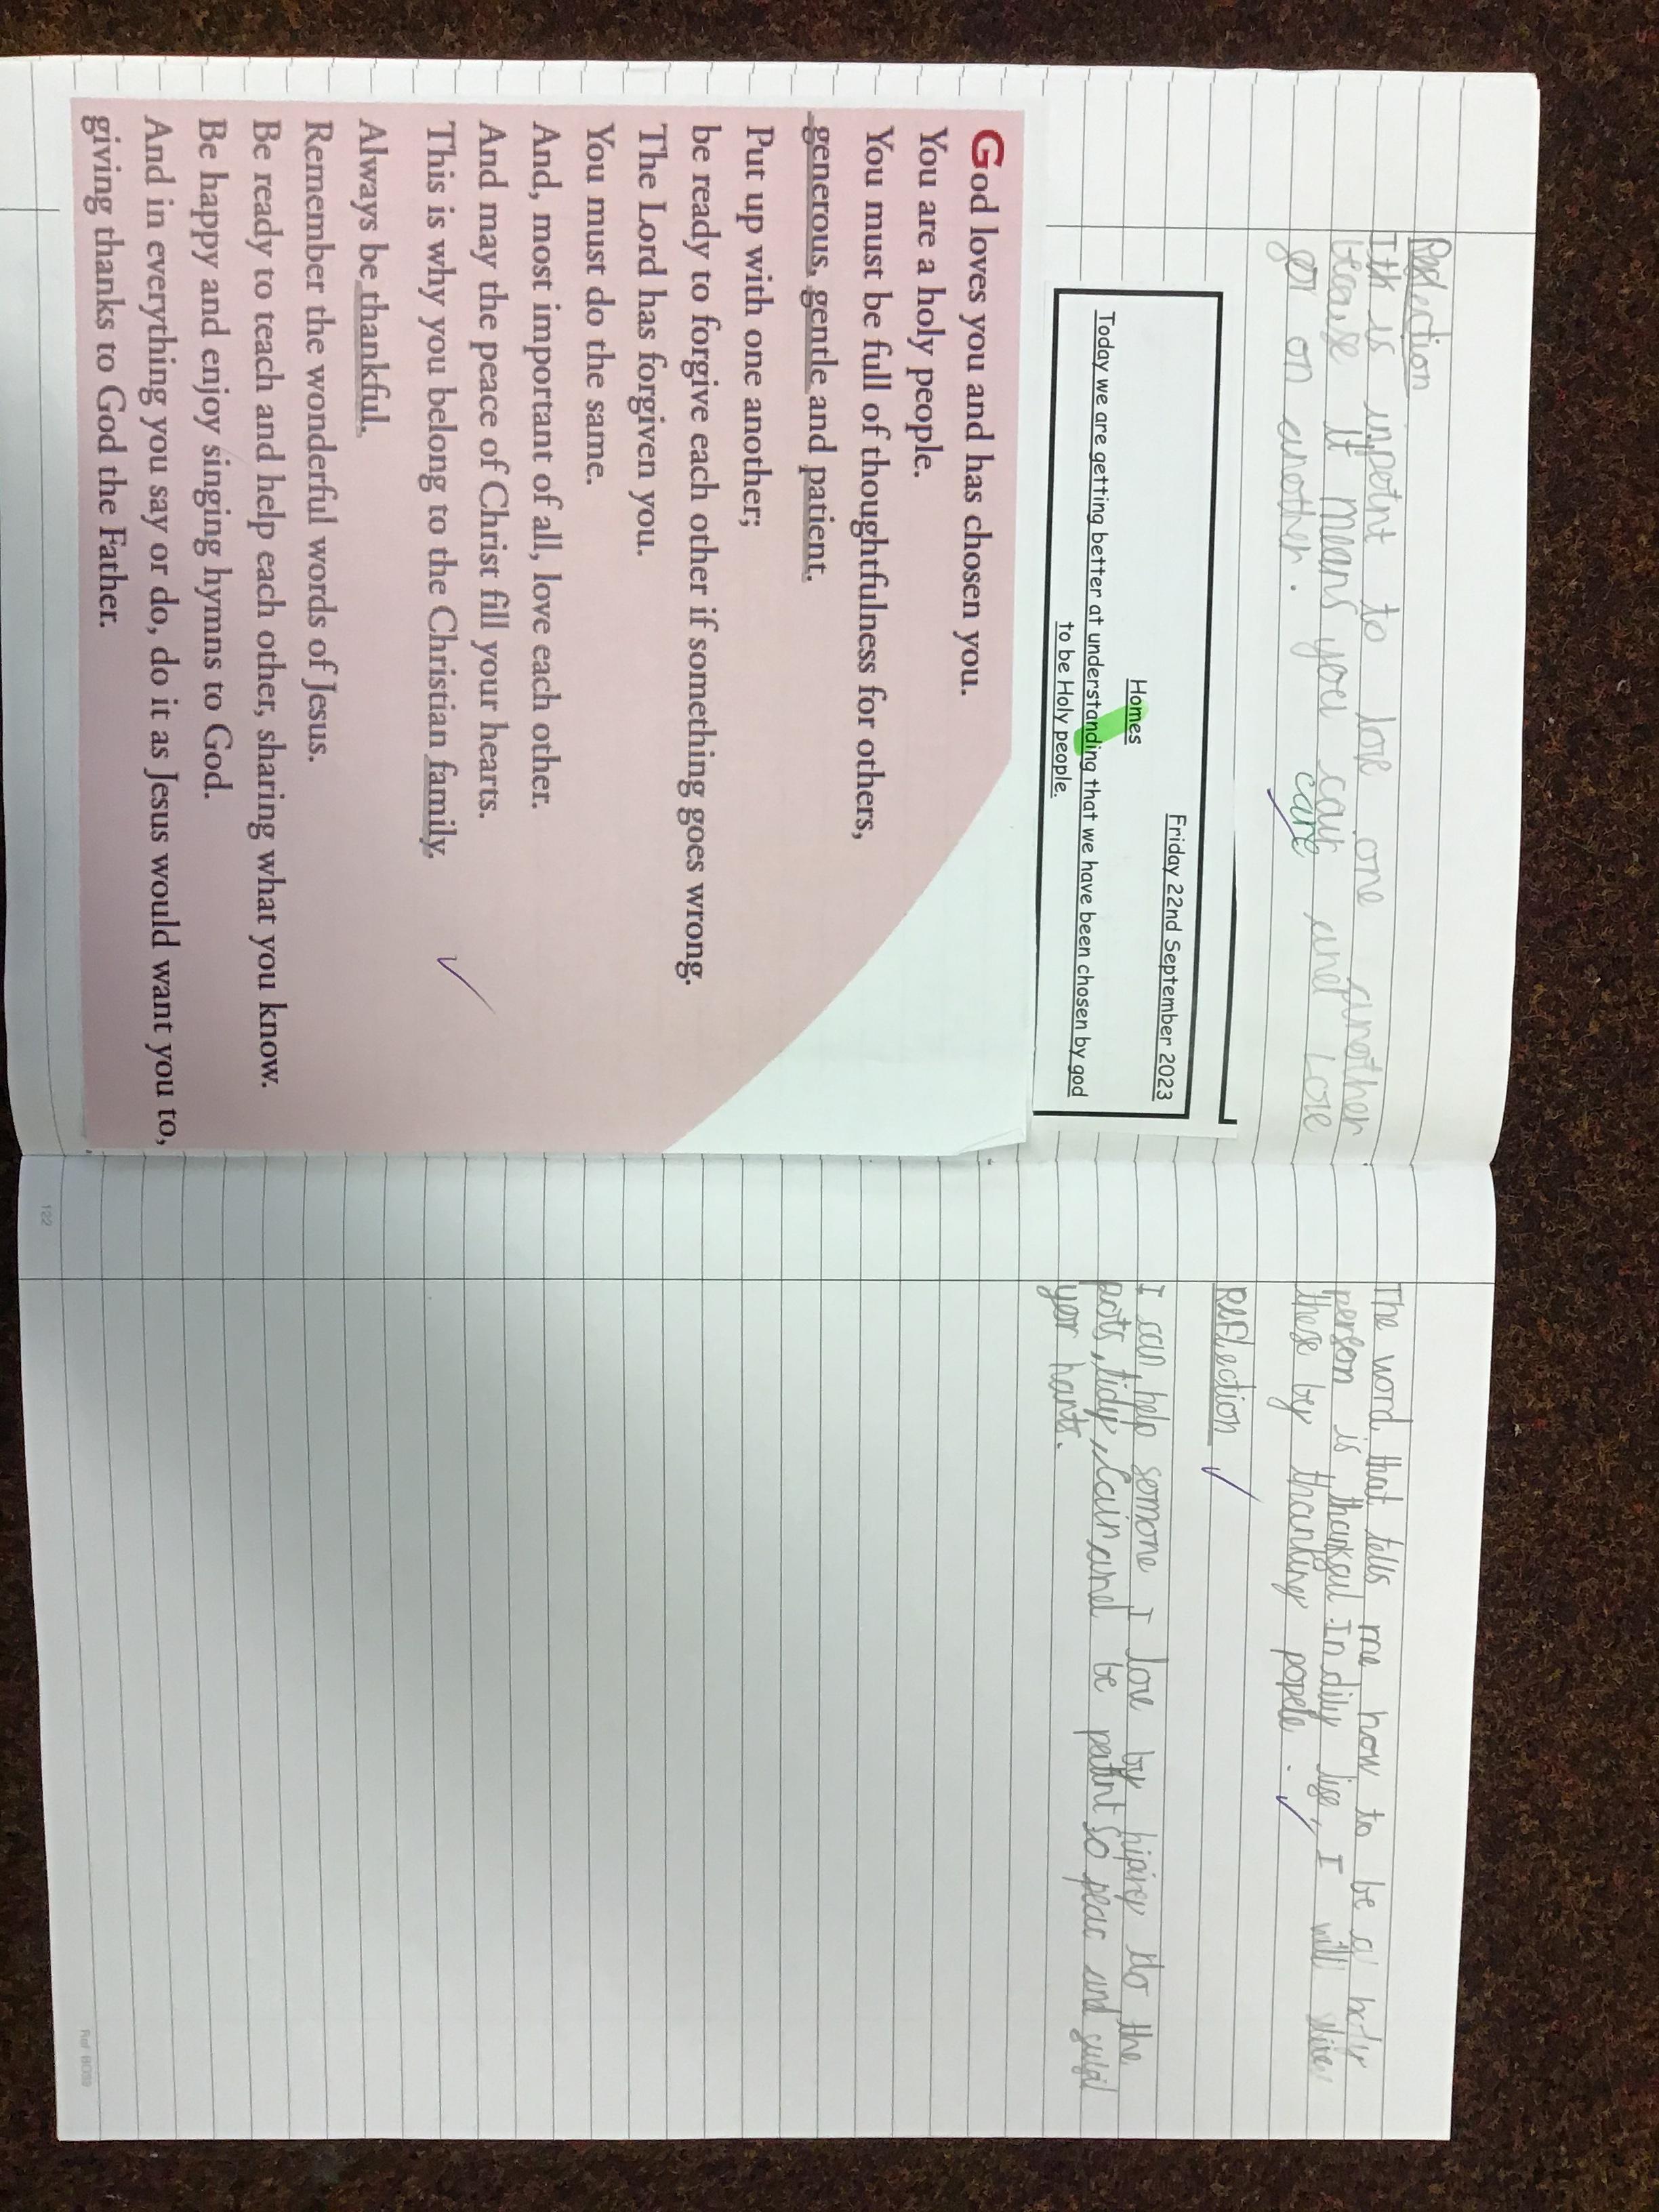 Reflection
Ith is inpotnt to love one another
becaise it means you cair and Love
for on another.
care
Friday 22nd September 2023
Homes
Today we are getting better at understanding that we have been chosen by god
to be Holy people.
God loves you and has chosen you.
You are a holy people.
You must be full of thoughtfulness for others,
generous, gentle and patient.
Put up with one another;
be ready to forgive each other if something goes wrong.
The Lord has forgiven you.
You must do the same.
And, most important of all, love each other.
And may the peace of Christ fill your hearts.
This is why you belong to the Christian family.
Always be thankful.
Remember the wonderful words of Jesus.
Be ready to teach and help each other, sharing what you know.
Be happy and enjoy singing hymns to God.
And in everything you say or do, do it as Jesus would want you to,
giving thanks to God the Father.
122
The word that tells me how to be a holy
person is thankful. In dily life, I will
these by thanking popele.
Reflection
I can help somone I love by hiping do the
pots, tidy, and be patint so and
yor harts.